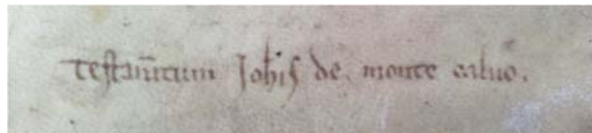 Testam̄tum Joh̄is de monte caluo.